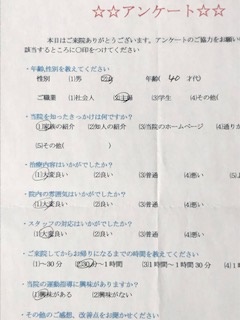 ☆☆アンケート☆☆
本日はご来院ありがとうございます。アンケートのご協力をお願い
該当するところに〇印をつけてください
・年齢,性別を教えてください
性別 (1)男 (2)女 年齢( 40 才代)
ご職業 (1)社会人 (2)主婦 (3)学生 (4)その他(
・当院を知ったきっかけは何ですか?
(1)家族の紹介 (2)知人の紹介 (3)当院のホームページ (4)通り
(5)その他( )
・治療内容はいかがでしたか?
(1)大変良い (2)良い (3)普通 (4)悪い
・院内の雰囲気はいかがでしたか?
(1)大変良い (2)良い (3)普通 (4)悪い
・スタッフの対応はいかがでしたか?
(1)大変良い (2)良い (3)普通 (4)悪い
・ご来院してからお帰りになるまでの時間を教えてください
(1)~30分 (2)30分~1時間 (3)1時間~1時間30分 (4)1
・当院の運動指導に興味がありますか?
(1)興味がある (2)興味がない
・その他のご感想、改善点をお聞かせください